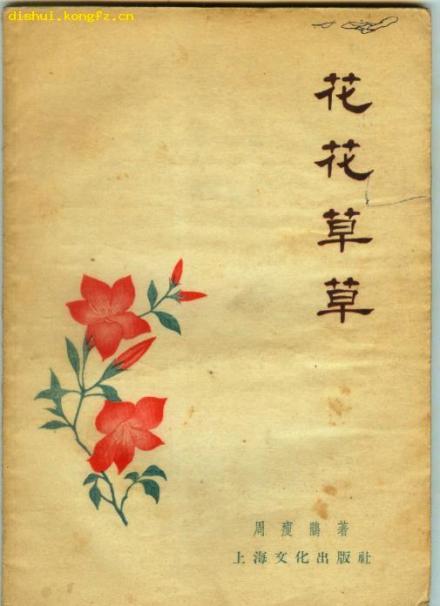 dishui.kongfz.cn
花花草草
周瘦鵑著
上海文化出版社